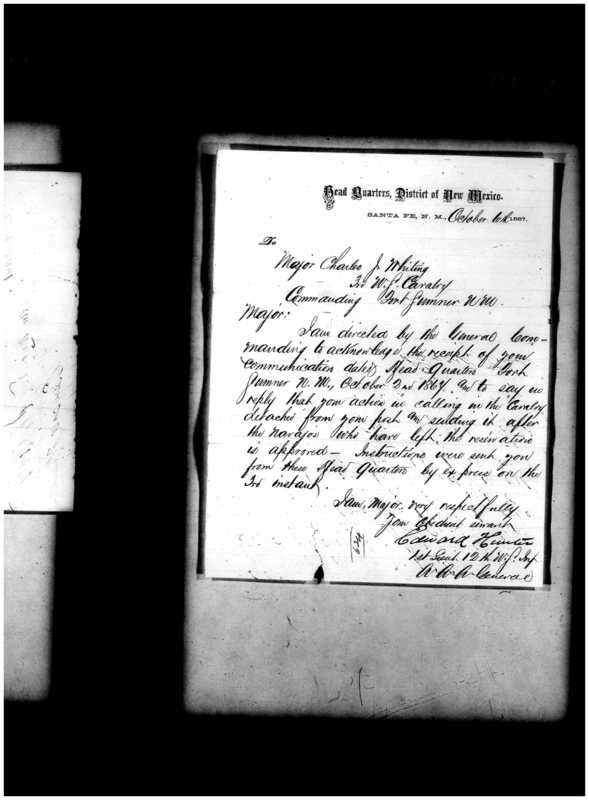 Head Quarters, District of New Mexico.
SANTA FE, N. M., October 6th 1867.
To
Major Charles J. Whiting
3rd U.S. Cavalry
Commanding Fort Sumner N.M.
Major:
I am directed by the General Com-
manding to acknowledge the receipt of your
communication dated Head Quarters Fort
Sumner N.M., October 2nd 1867 and to say in
reply that your action in calling in the Cavalry
detached from your post and sending it after
the Navajos who have left the reservation
is approved — Instructions were sent you
from these Head Quarters by express on the
3rd instant.
I am, Major, very respectfully
Your obedient servant
Edward Hunter
1st Lieut. 12th U.S. Inf
A.A.A. General